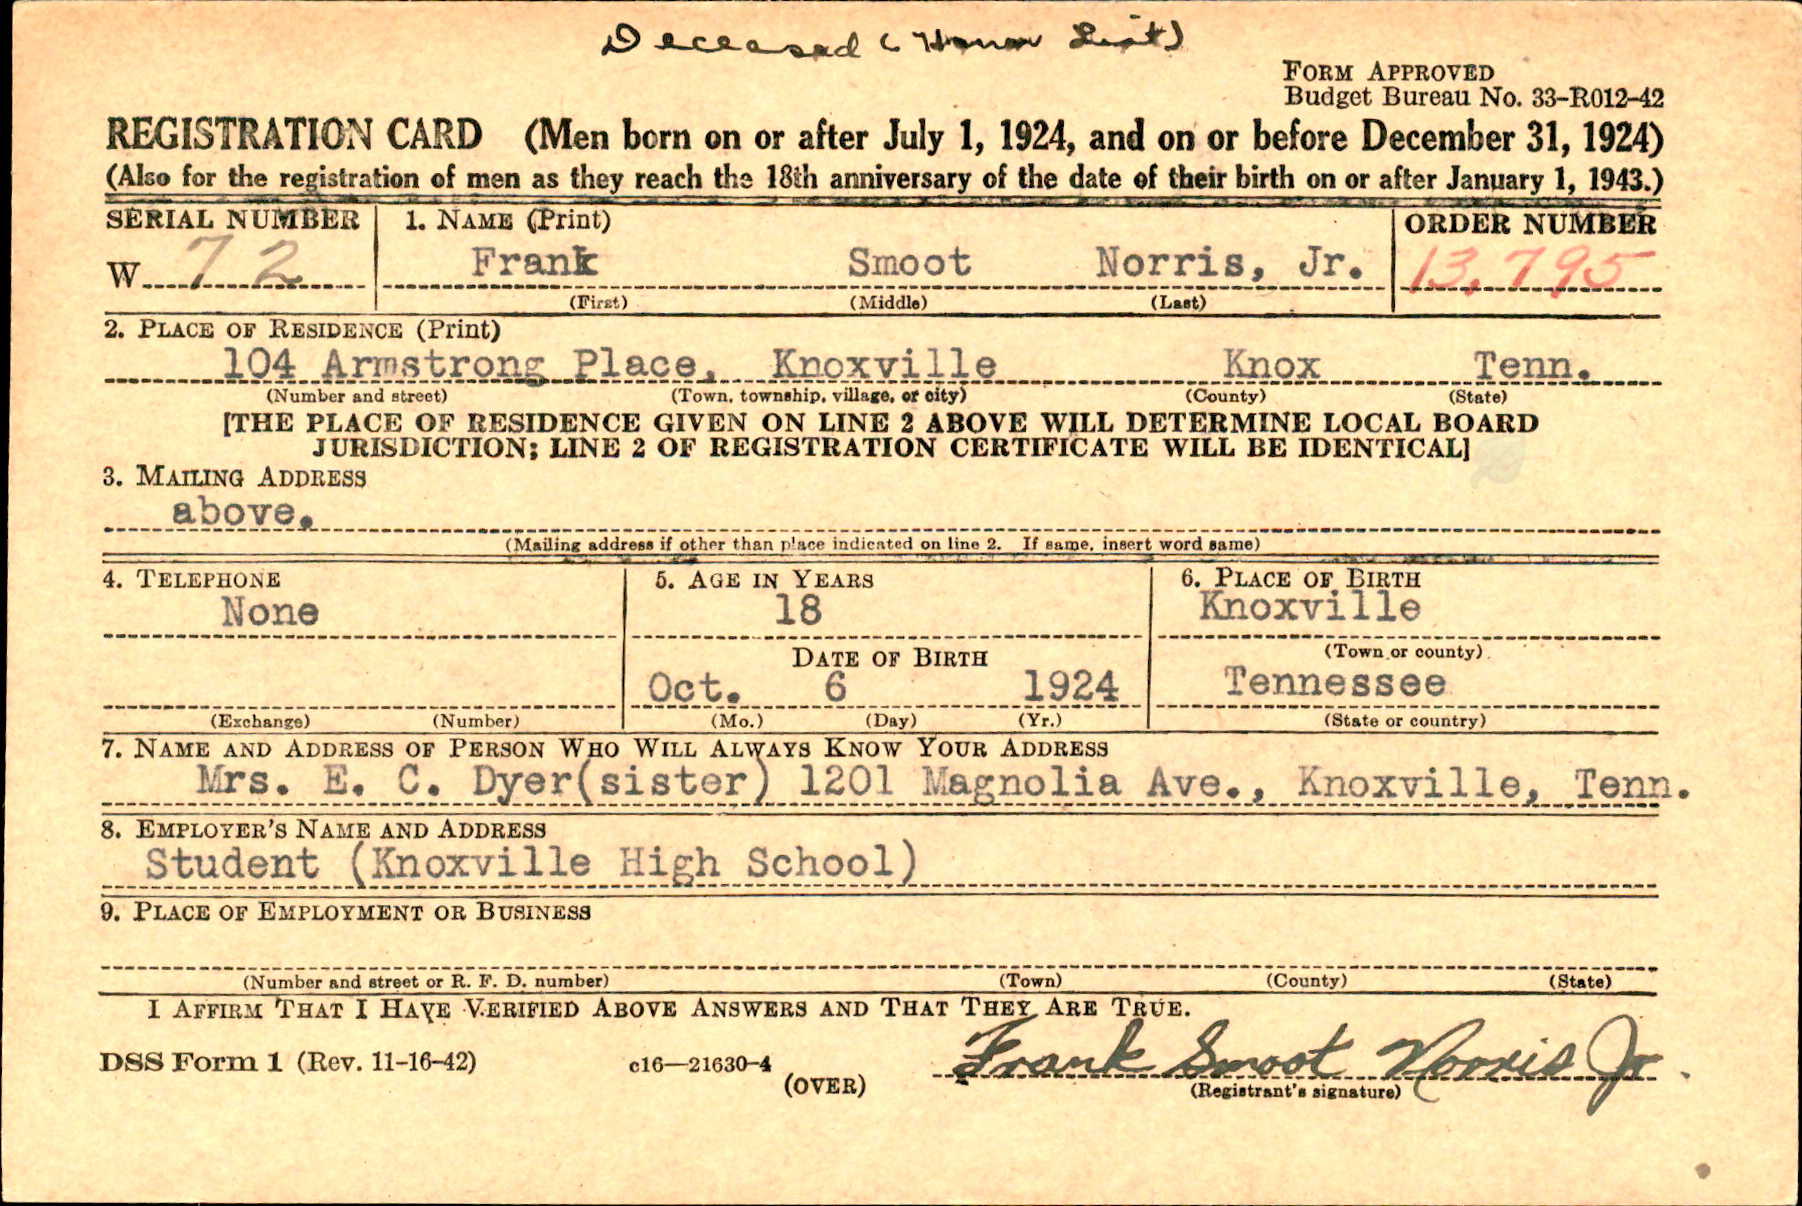 Deceased (Honor List)
FORM APPROVED
Budget Bureau No. 33-R012-42
REGISTRATION CARD (Men born on or after July 1, 1924, and on or before December 31, 1924)
(Also for the registration of men as they reach the 18th anniversary of the date of their birth on or after January 1, 1943.)
SERIAL NUMBER 1. NAME (Print) ORDER NUMBER
W 72 Frank Smoot Norris, Jr. 13,795
(First) (Middle) (Last)
2. PLACE OF RESIDENCE (Print)
104 Armstrong Place, Knoxville Knox Tenn.
(Number and street) (Town, township, village, or city) (County) (State)
[THE PLACE OF RESIDENCE GIVEN ON LINE 2 ABOVE WILL DETERMINE LOCAL BOARD
JURISDICTION; LINE 2 OF REGISTRATION CERTIFICATE WILL BE IDENTICAL]
3. MAILING ADDRESS
above.
(Mailing address if other than place indicated on line 2. If same, insert word same)
4. TELEPHONE 5. AGE IN YEARS 6. PLACE OF BIRTH
None 18 Knoxville
DATE OF BIRTH (Town or county)
Oct. 6 1924 Tennessee
(Exchange) (Number) (Mo.) (Day) (Yr.) (State or country)
7. NAME AND ADDRESS OF PERSON WHO WILL ALWAYS KNOW YOUR ADDRESS
Mrs. E. C. Dyer(sister) 1201 Magnolia Ave., Knoxville, Tenn.
8. EMPLOYER'S NAME AND ADDRESS
Student (Knoxville High School)
9. PLACE OF EMPLOYMENT OR BUSINESS
(Number and street or R. F. D. number) (Town) (County) (State)
I AFFIRM THAT I HAVE VERIFIED ABOVE ANSWERS AND THAT THEY ARE TRUE.
DSS Form 1 (Rev. 11-16-42) c16—21630-4 Frank Smoot Norris Jr.
(OVER) (Registrant's signature)